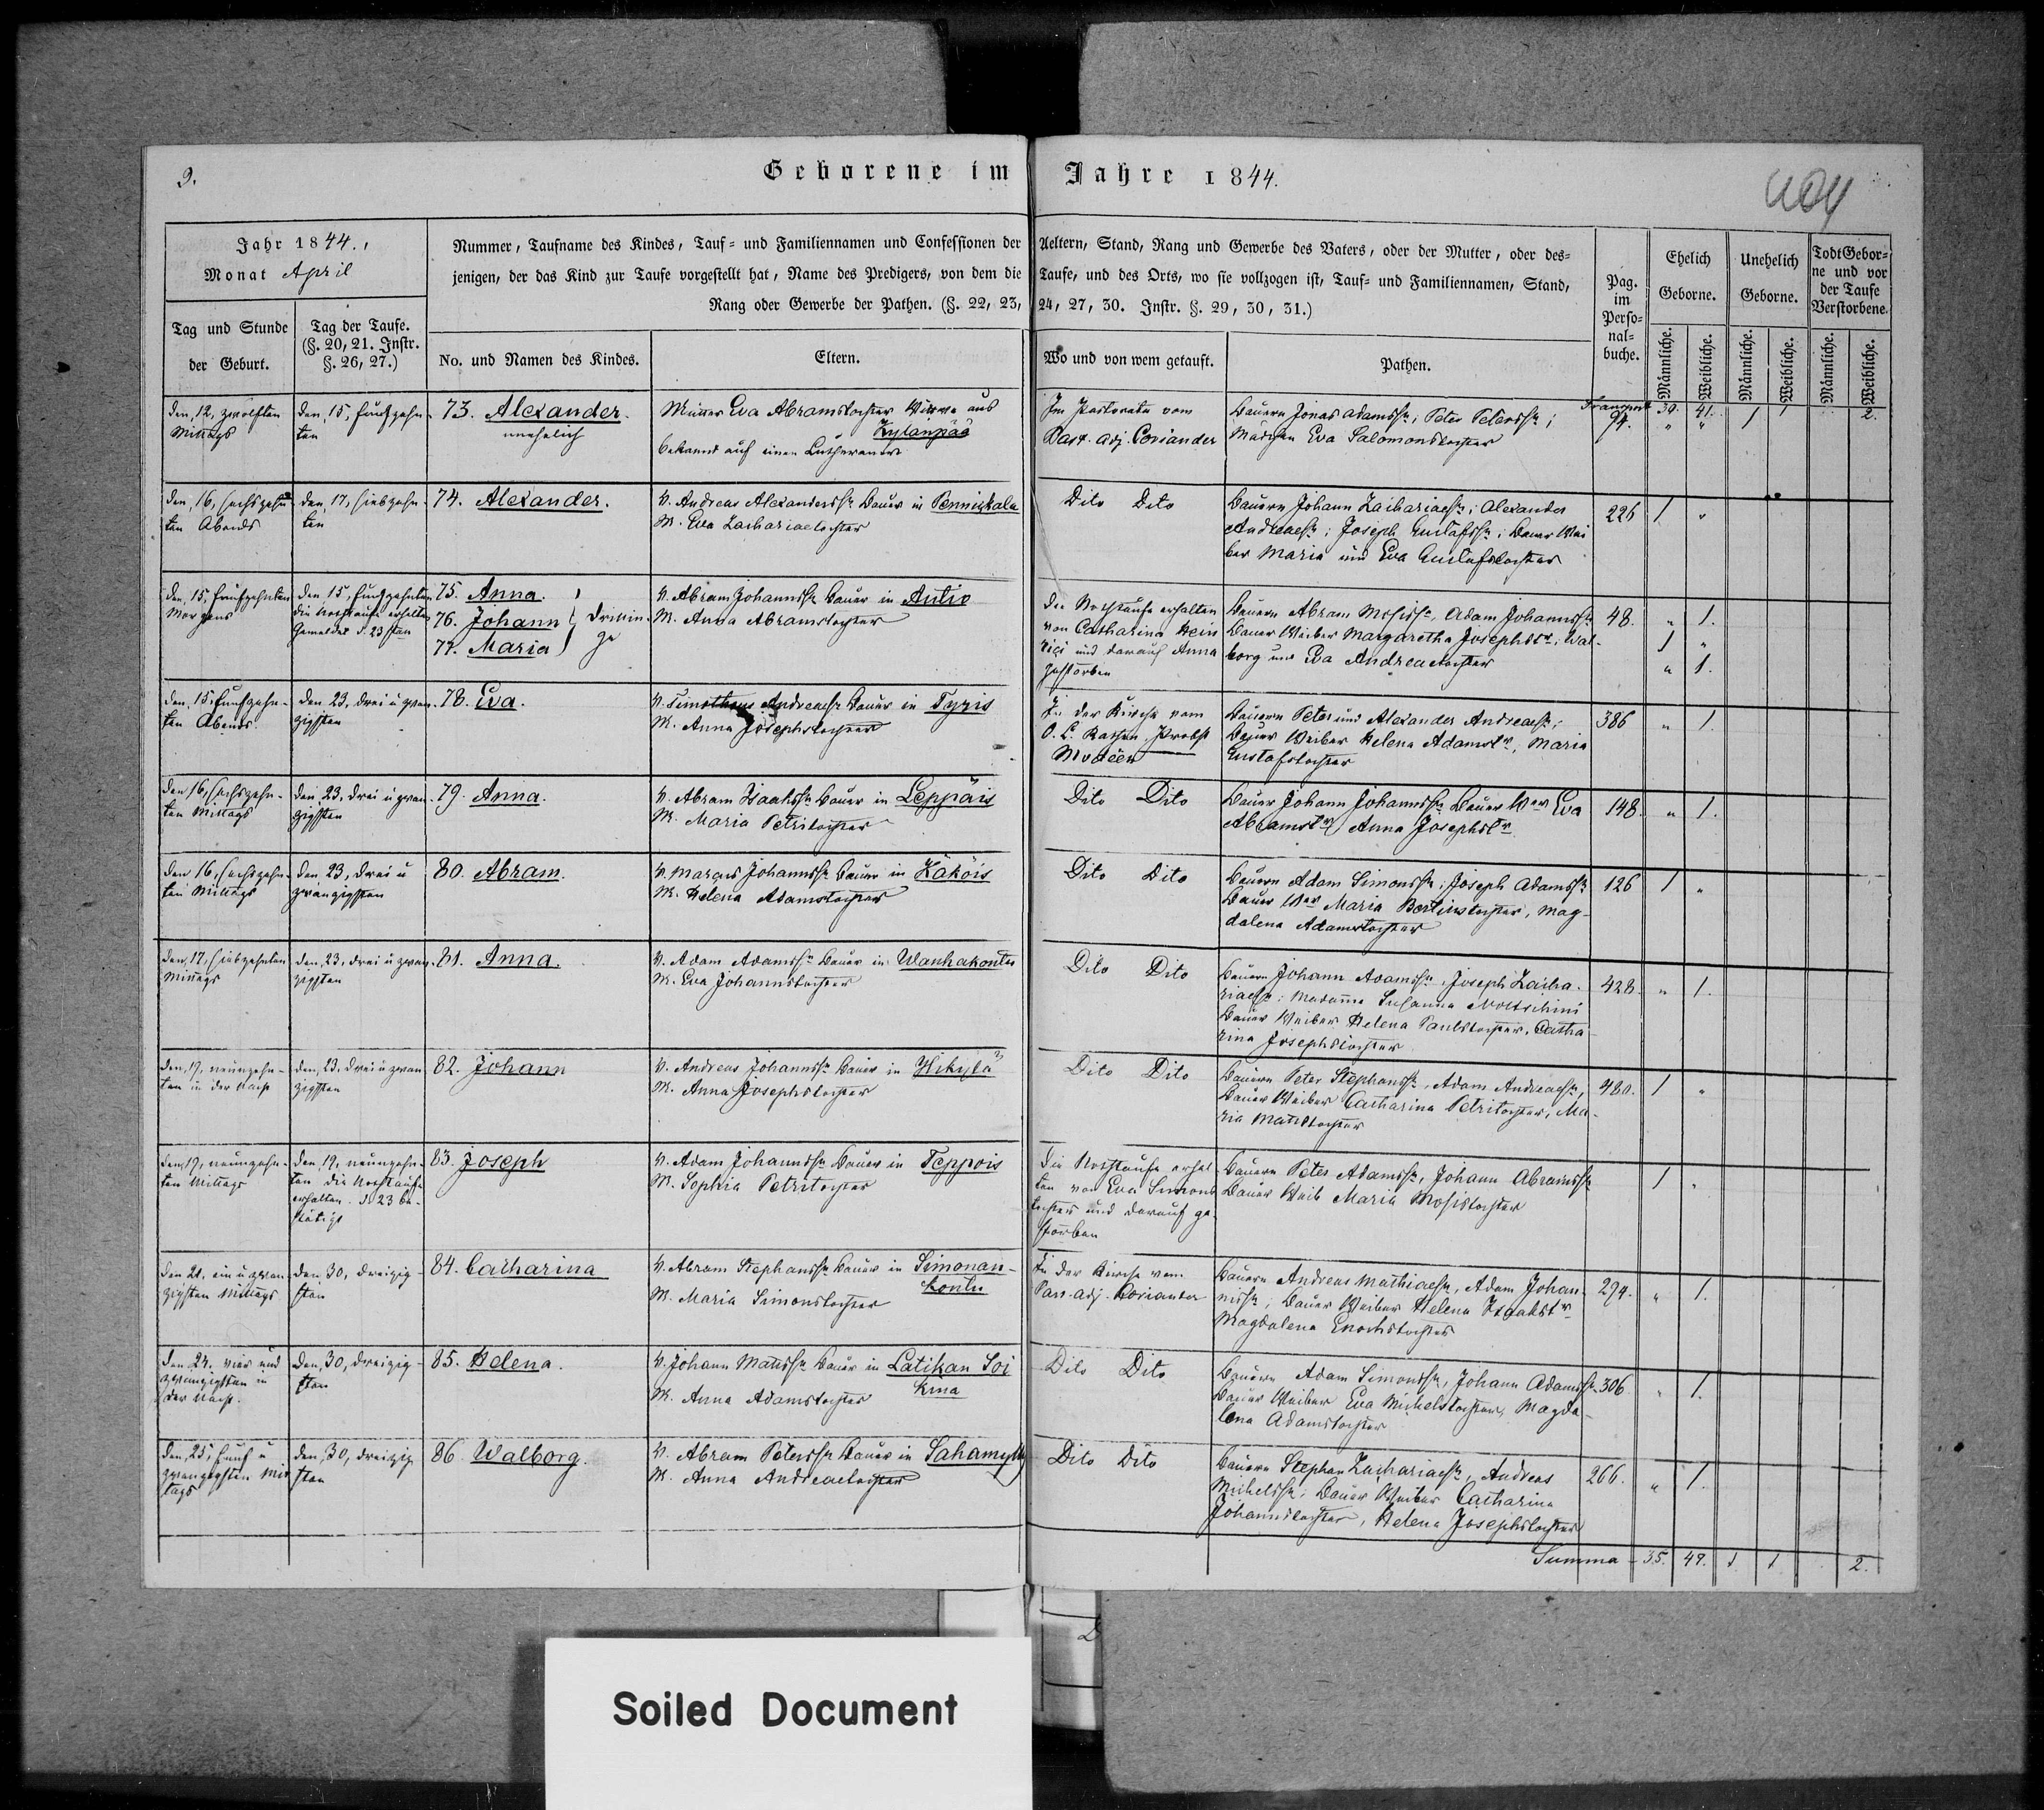 9.
Geborene im Jahre 1844.
Jahr 1844.,
Monat April
Tag und Stunde
der Geburt.
Tag der Taufe.
(§. 20, 21. Instr.
§. 26, 27.)
Nummer, Taufname des Kindes, Tauf- und Familiennamen und Confessionen der Aeltern, Stand, Rang und Gewerbe des Vaters, oder der Mutter, oder des-
jenigen, der das Kind zur Taufe vorgestellt hat, Name des Predigers, von dem die Taufe, und des Orts, wo sie vollzogen ist, Tauf- und Familiennamen, Stand,
Rang oder Gewerbe der Pathen. (§. 22, 23, 24, 27, 30. Instr. §. 29, 30, 31.)
No. und Namen des Kindes.
Eltern.
Wo und von wem getauft.
Pathen.
Pag.
im
Perso-
nal-
buche.
Ehelich
Geborne.
Unehelich
Geborne.
Todt Gebor-
ne und vor
der Taufe
Verstorbene.
Männliche.
Weibliche.
Männliche.
Weibliche.
Männliche.
Weibliche.
Transport 30. 41. 1 2.
den 12, zwölften
Mittags
den 15, fünfzehn-
ten
73. Alexander.
unehelich
Mutter Eva Abramstochter Wittwe aus
Kylänpää
bekannt auf einen Lutheraner
Im Pastorate vom
Past. adj. Coriander
Bauern Jonas Adamssn; Peter Peterssn;
Mädchen Eva Salomonstochter
94. " " 1
den 16, sechszehn-
ten Abends
den 17, siebzehn-
ten
74. Alexander.
V. Andreas Alexanderssn Bauer in Pennikkala
M. Eva Zachariaetochter
Dito Dito
Bauern Johann Zachariaesn; Alexander
Andreaesn; Joseph Gustafssn; Bauer Wei
ber Maria und Eva Gustafstochter
226 1 "
den 15, fünfzehnten
Morgens
den 15, fünfzehnten
die Nothtaufe erhalten
Gemeldet d. 23sten
75. Anna.
76. Johann
77. Maria
Drillin-
ge
V. Abram Johannssn Bauer in Autio
M. Anna Abramstochter
Die Nothtaufe erhalten
von Catharina Hein
rici und darauf Anna
gestorben
Bauern Abram Mosissn, Adam Johannssn
Bauer Weiber Margaretha Josephstr; Wal-
borg und Eva Andreaetochter
48. " 1.
1 "
" 1.
den 15, fünfzehn-
ten Abends
den 23, drei u zwan-
zigsten
78. Eva.
V. Timotheus Andreaesn Bauer in Tyris
M. Anna Josephstochter
In der Kirche vom
Probst
Bauern Peter und Alexander Andreaesn;
Bauer Weiber Helena Adamstr, Maria
Gustafstochter
386 " 1.
den 16, sechszehn-
ten Mittags
den 23, drei u zwan-
zigsten
79. Anna.
V. Abram Isaakssn Bauer in Leppäis
M. Maria Petritochter
Dito Dito
Bauer Johann Johannssn Bauer Wer Eva
Abramstr, Anna Josephstr
148. " 1.
den 16, sechszehn-
ten Mittags
den 23, drei u
zwanzigsten
80. Abram.
V. Marcus Johannssn Bauer in Käköis
M. Helena Adamstochter
Dito Dito
Bauern Adam Simonssn; Joseph Adamssn
Bauer Wer Maria Bertilstochter, Mag-
dalena Adamstochter
126 1 "
den 17, siebzehnten
Mittags
den 23, drei u zwan-
zigsten
81. Anna.
V. Adam Adamssn Bauer in Wanhakontu
M. Eva Johannstochter
Dito Dito
Bauern Johann Adamssn, Joseph Zacha-
riaesn; Madame Susanna
Bauer Weiber Helena Paulstochter, Catha-
rina Josephstochter
428. " 1.
den 19, neunzehn-
ten in der Nacht
den 23, drei u zwan-
zigsten
82. Johann
V. Andreas Johannssn Bauer in Wikylä
M. Anna Josephstochter
Dito Dito
Bauern Peter Stephanssn, Adam Andreaesn,
Bauer Weiber Catharina Petritochter, Ma-
ria Mattstochter
480. 1 "
den 19, neunzehn-
ten Mittags
den 19, neunzehn-
ten die Nothtaufe
erhalten d 23 be-
stätigt
83. Joseph
V. Adam Johannssn Bauer in Teppois
M. Sophia Petritochter
Die Nothtaufe erhal-
ten von Eva Simons
tochter und darauf ge-
storben
Bauern Peter Adamssn, Johann Abramssn
Bauer Weib Maria Mosistochter
1 "
den 21, ein u zwan-
zigsten Mittags
den 30, dreizig-
sten
84. Catharina
V. Abram Stephanssn Bauer in Simonan-
kontu
M. Maria Simonstochter
In der Kirche vom
Past. adj. Coriander
Bauern Andreas Mathiaesn, Adam Johan-
nissn; Bauer Weiber Helena Isaakstr
Magdalena Enochstochter
294. " 1.
den 24. vier und
zwanzigsten in
der Nacht.
den 30, dreizig-
sten
85. Helena.
V. Johann Mattssn Bauer in Latikan Soi
kina
M. Anna Adamstochter
Dito Dito
Bauern Adam Simonssn, Johann Adamssn
Bauer Weiber Eva Michelstochter, Magda-
lena Adamstochter
306 " 1.
den 25, fünf u
zwanzigsten Mit
tags
den 30, dreizig
sten
86. Walborg.
V. Abram Peterssn Bauer in Sahamylly
M. Anna Andreaetochter
Dito Dito
Bauern Stephan Zachariaesn, Andreas
Michelssn; Bauer Weiber Catharina
Johannstochter, Helena Josephstochter
266. " 1.
Summa - 35. 49. 1. 1 2.
Soiled Document